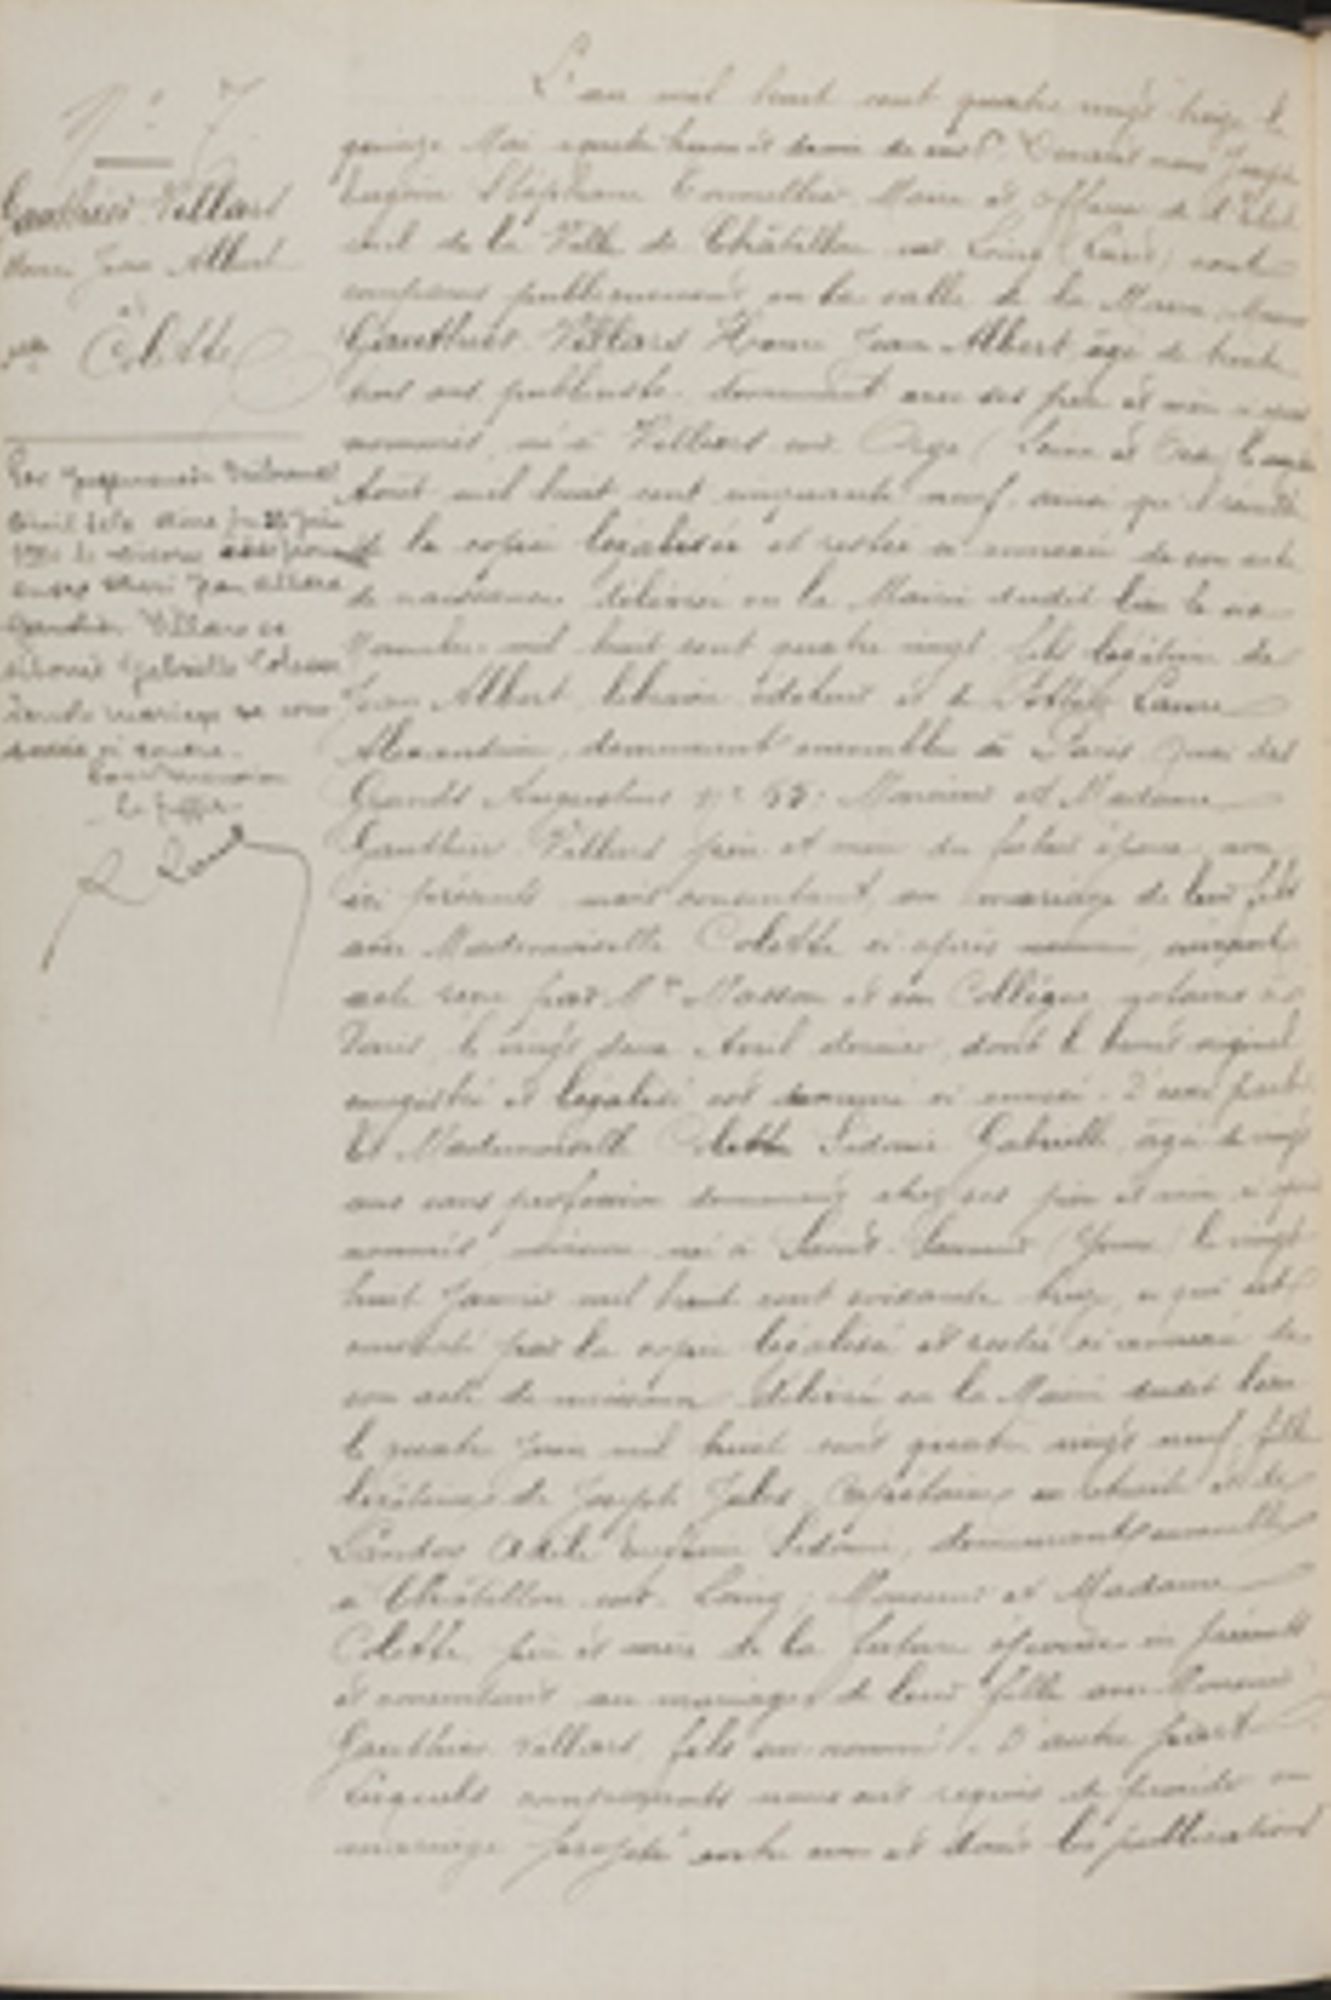 N° 7
Gauthier Villars
Henri Jean Albert
et
Mlle Colette
Par jugement du Tribunal
Civil de la Seine du 21 juin
le divorce
entre Henri Jean Albert
Gauthier Villars et
Sidonie Gabrielle Colette
dont le mariage
ci contre.
Pour mention
Le Greffier
L'an mil huit cent quatre vingt treize le
quinze Mai à quatre heures et demie de Devant nous Joseph
Eugène Stéphane Maire et officier de l'État
civil de la Ville de Châtillon sur Loing (Loiret) sont
comparus publiquement en la salle de la Mairie
Gauthier Villars Henri Jean Albert âgé de trente
trois ans publiciste demeurant avec ses père et mère ci après
nommés, né à Villiers sur Orge (Seine et Oise) le
Août mil huit cent cinquante neuf, ainsi qu'il résulte
de la copie légalisée et restée ci annexée de son acte
de naissance délivrée en la Mairie dudit lieu le six
mil huit cent quatre vingt fils légitime de
Jean Albert, libraire éditeur et de Laure
demeurant ensemble à Paris quai des
Grands Augustins n° 55. Monsieur et Madame
Gauthier Villars père et mère du futur époux, non
ici présents mais consentant au mariage de leur fils
avec Mademoiselle Colette ci après nommée, suivant
acte reçu par Me Masson et son Collègue, notaires à
Paris, le vingt deux Avril dernier, dont le brevet original
enregistré et légalisé est demeuré ci annexé. D'une part.
Et Mademoiselle Colette Sidonie Gabrielle, âgée de vingt
ans sans profession demeurant chez ses père et mère ci après
nommés, mineure née à Saint Sauveur (Yonne) le vingt
huit Janvier mil huit cent soixante treize, ce qui est
constaté par la copie légalisée et restée ci annexée de
son acte de naissance délivrée en la Mairie dudit lieu
le quatre Juin mil huit cent quatre vingt neuf, fille
légitime de Joseph Jules, Capitaine en retraite et de
Landoy Adèle Eugénie Sidonie, demeurant ensemble
à Châtillon sur Loing; Monsieur et Madame
Colette, père et mère de la future épouse ici présents
et consentant au mariage de leur fille avec Monsieur
Gauthier Villars, fils sus nommé. D'autre part
Lesquels comparants nous ont requis de procéder au
mariage projeté entre eux et dont les publications